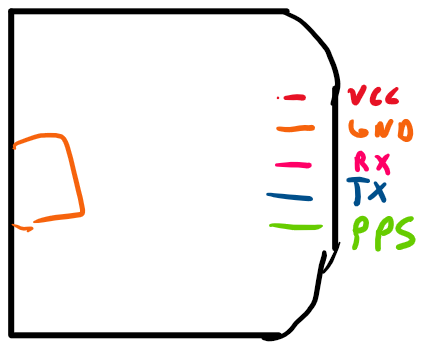 VCC
GND
RX
TX
PPS